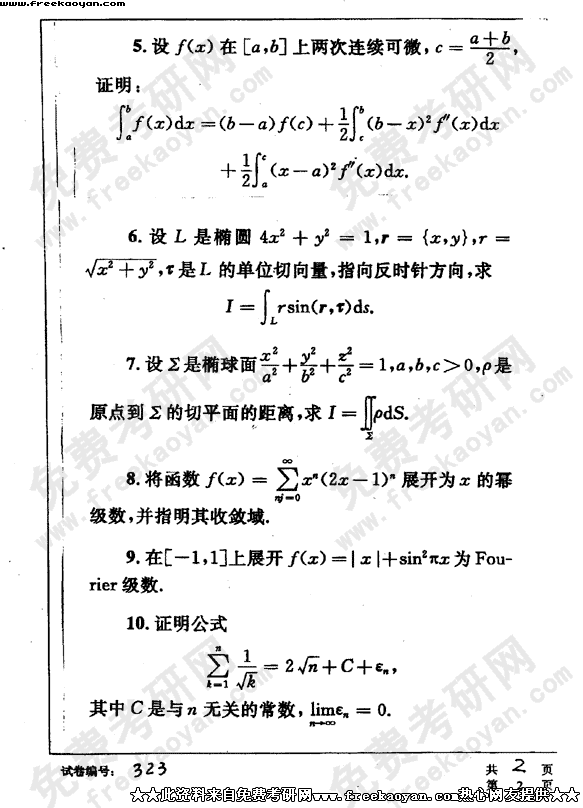 www.freekaoyan.com
5. 设 f(x) 在 [a,b] 上两次连续可微, c = (a+b)/2,
证明:
∫_a^b f(x)dx = (b−a)f(c) + 1/2 ∫_c^b (b−x)² f″(x)dx
+ 1/2 ∫_a^c (x−a)² f″(x)dx.
6. 设 L 是椭圆 4x² + y² = 1, r = {x,y}, r =
√(x² + y²), τ 是 L 的单位切向量, 指向反时针方向, 求
I = ∫_L r sin(r,τ)ds.
7. 设 Σ 是椭球面 x²/a² + y²/b² + z²/c² = 1, a,b,c > 0, ρ 是
原点到 Σ 的切平面的距离, 求 I = ∬_Σ ρdS.
8. 将函数 f(x) = ∑_{n=0}^∞ xⁿ(2x−1)ⁿ 展开为 x 的幂
级数, 并指明其收敛域.
9. 在[−1,1]上展开 f(x) = |x| + sin²πx 为 Fou-
rier 级数.
10. 证明公式
∑_{k=1}^n 1/√k = 2√n + C + ε_n,
其中 C 是与 n 无关的常数, lim_{n→∞} ε_n = 0.
试卷编号: 323
共 2 页
第 2 页
★★此资料来自免费考研网www.freekaoyan.com热心网友提供★★
免费考研网
www.freekaoyan.com